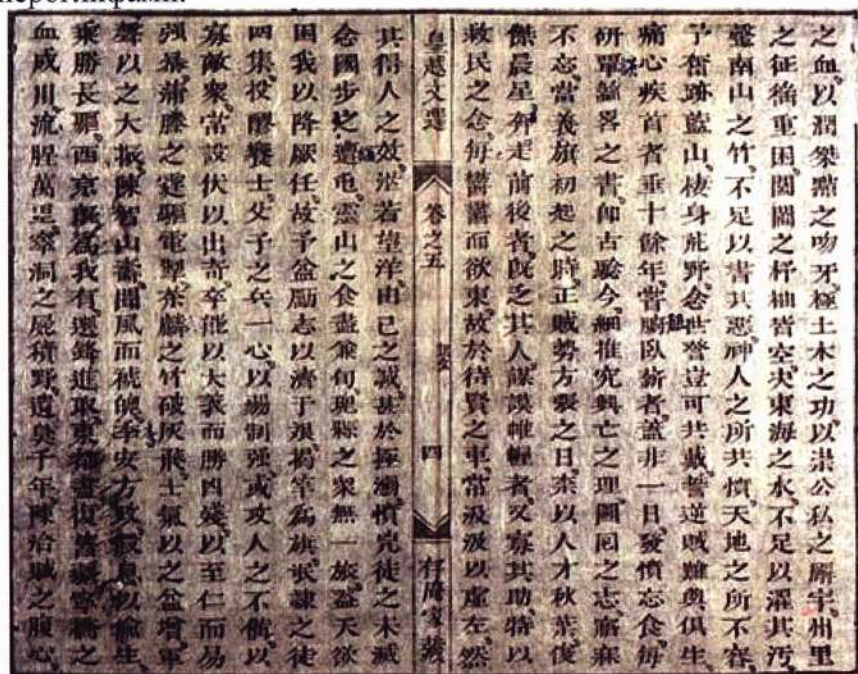 之血以潤桀黠之吻牙極土木之功以崇公私之廨宇州里
之征徭重困閭閻之杼柚皆空決東海之水不足以濯其汚
罄南山之竹不足以書其惡神人之所共憤天地之所不容
予奮跡藍山棲身荒野念世讐豈可共戴誓逆賊難與俱生
痛心疾首者垂十餘年嘗膽臥薪者蓋非一日發憤忘食每
研覃韜畧之書卽古驗今細推究興亡之理圖囘之志寤寐
不忘當義旗初起之時正賊勢方張之日柰以人才秋葉俊
傑晨星奔走前後者旣乏其人謀謨帷幄者又寡其助特以
救民之念每鬱鬱而欲東故於待賢之車常汲汲以虛左然
皇越文選
卷之五
四
存庵家藏
其得人之效茫若望洋由己之誠甚於拯溺憤兇徒之未滅
念國步之遭迍靈山之食盡兼旬瑰縣之衆無一旅蓋天欲
困我以降厥任故予益勵志以濟于艱揭竿爲旗氓隷之徒
四集投醪饗士父子之兵一心以弱制强或攻人之不備以
寡敵衆常設伏以出奇卒能以大義而勝凶殘以至仁而易
强暴蒲藤之霆驅電掣茶麟之竹破灰飛士氣以之益增軍
聲以之大振陳智山壽聞風而褫魄李安方政假息以偷生
乘勝長驅西京旣爲我有選鋒進取東都盡復舊疆寧橋之
血成川流腥萬里窣洞之屍積野遺臭千年陳洽賊之腹心